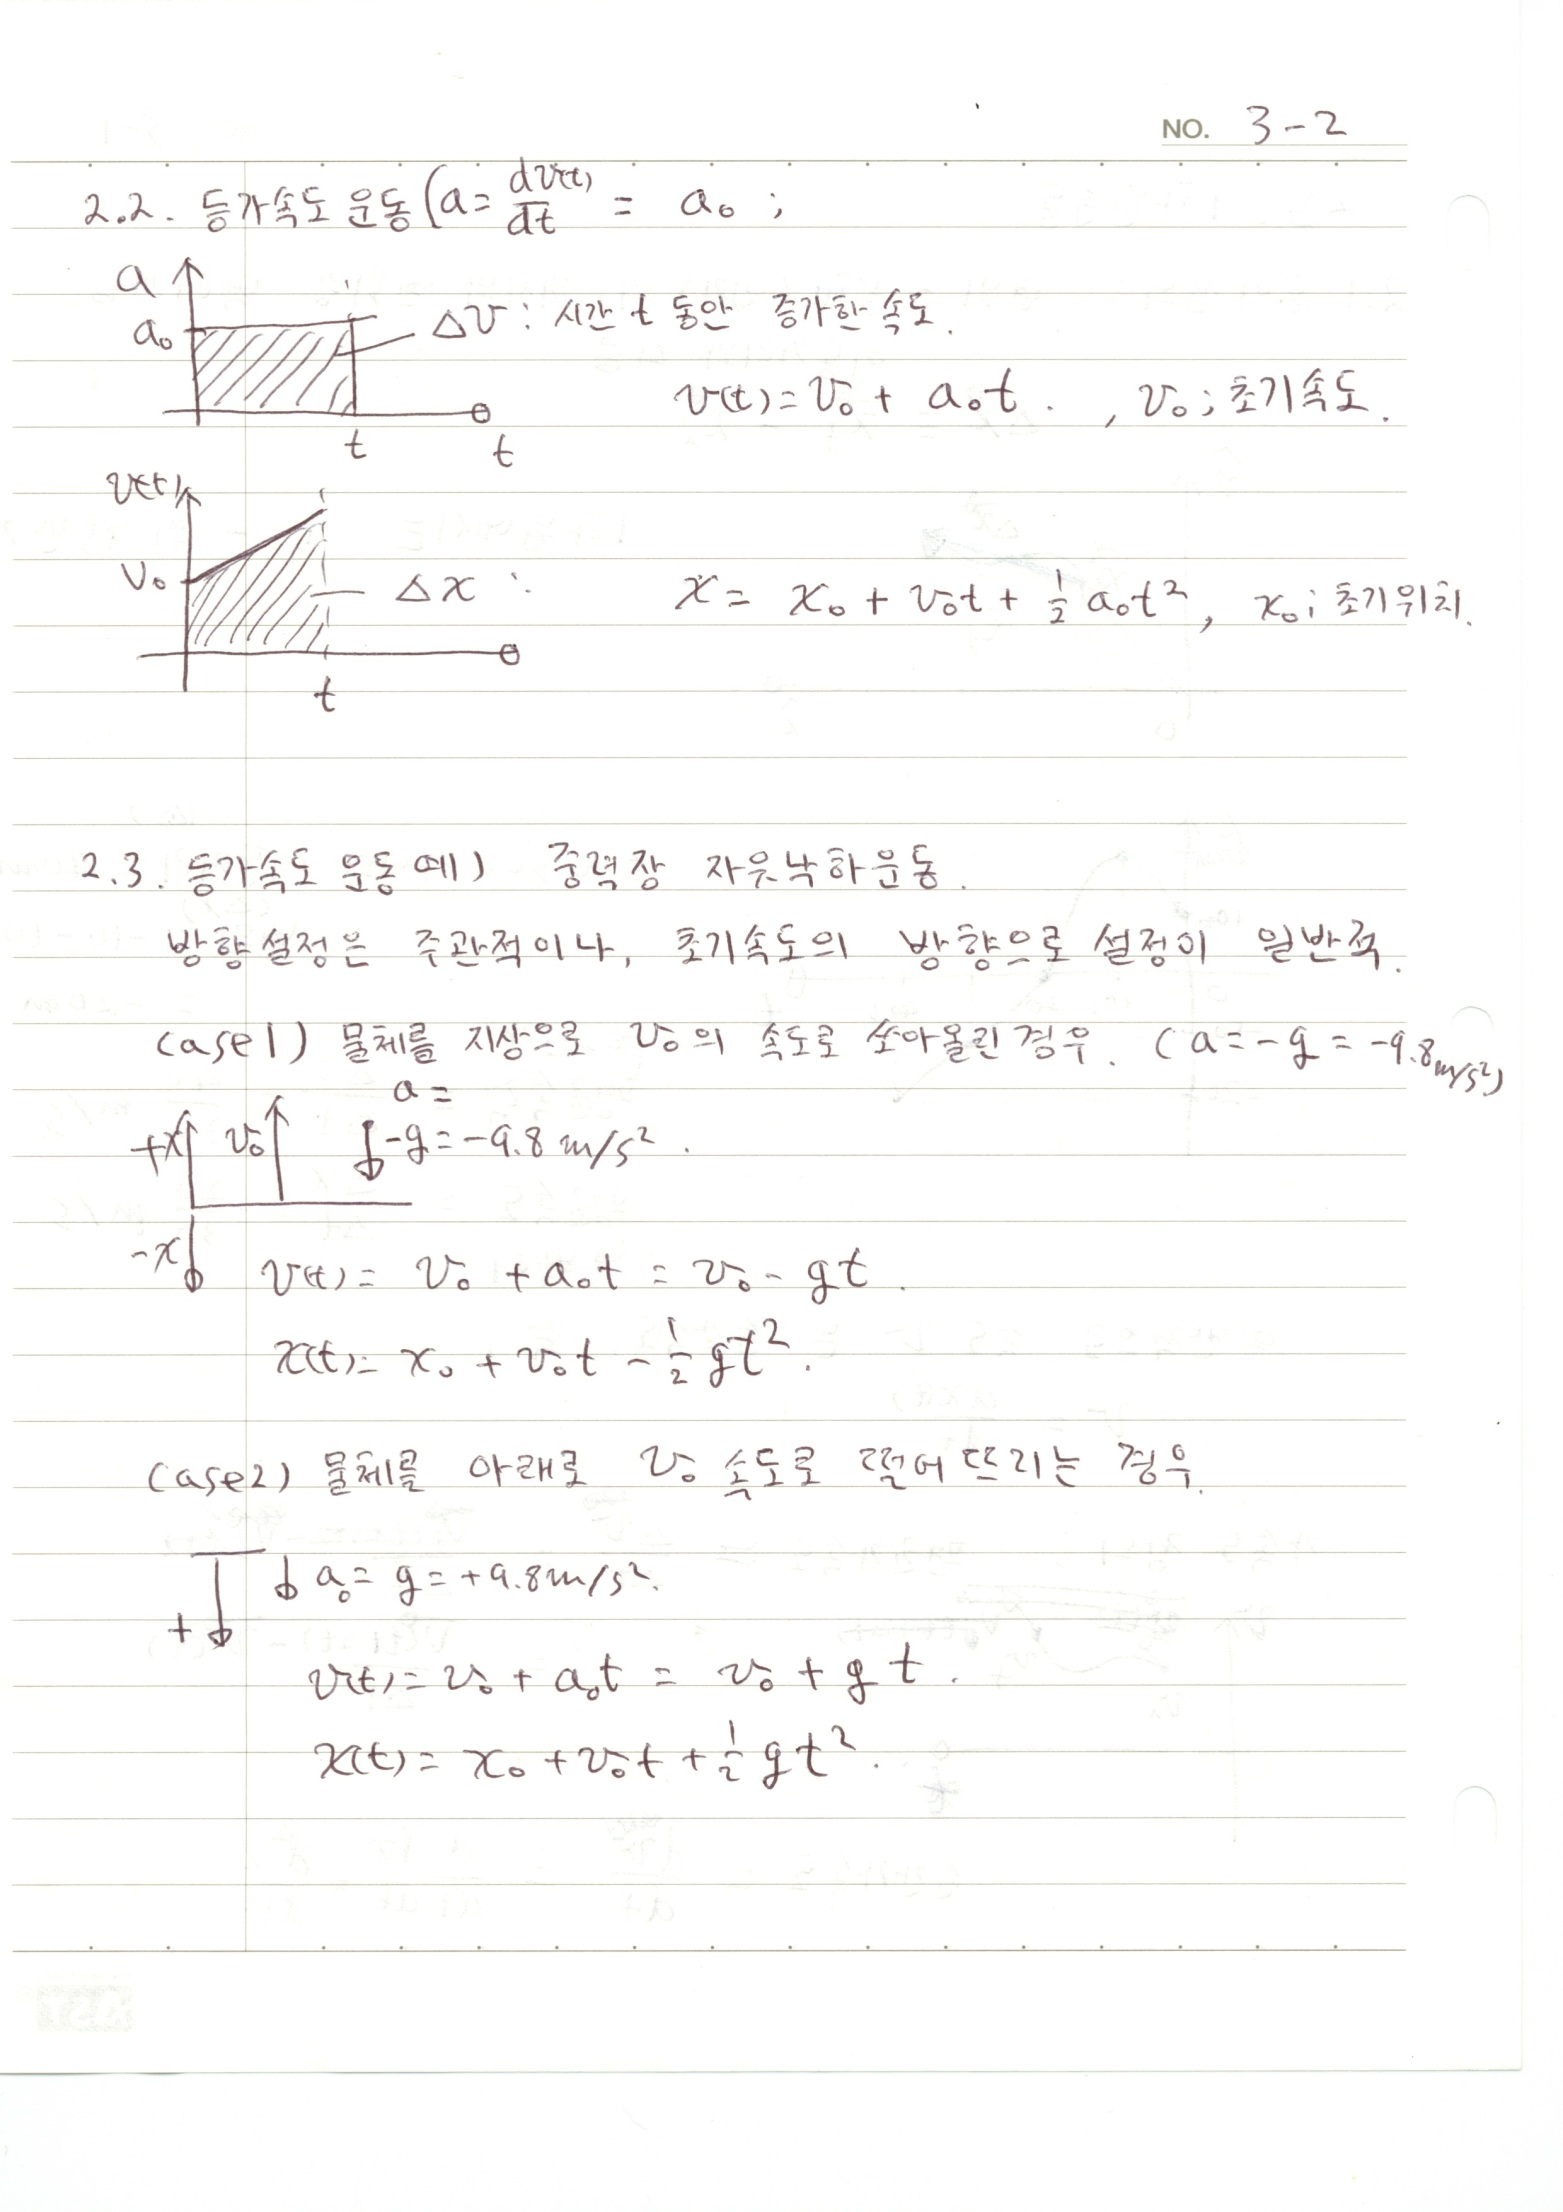 NO. 3-2
2.2. 등가속도 운동 (a = dv(t)/dt = a₀ ;
a
a₀
Δv : 시간 t 동안 증가한 속도.
v(t) = v₀ + a₀t . , v₀ ; 초기속도.
t
t
v(t)
v₀
Δx : x = x₀ + v₀t + ½ a₀t², x₀ ; 초기위치.
t
2.3. 등가속도 운동 예) 중력장 자유낙하운동.
방향설정은 주관적이나, 초기속도의 방향으로 설정이 일반적.
case1) 물체를 지상으로 v₀의 속도로 쏘아올린경우. (a = -g = -9.8 m/s²)
a =
+x v₀ -g = -9.8 m/s².
-x
v(t) = v₀ + a₀t = v₀ - gt.
x(t) = x₀ + v₀t - ½ gt².
case2) 물체를 아래로 v₀ 속도로 떨어뜨리는 경우.
a₀ = g = +9.8 m/s².
+
v(t) = v₀ + a₀t = v₀ + gt.
x(t) = x₀ + v₀t + ½ gt².